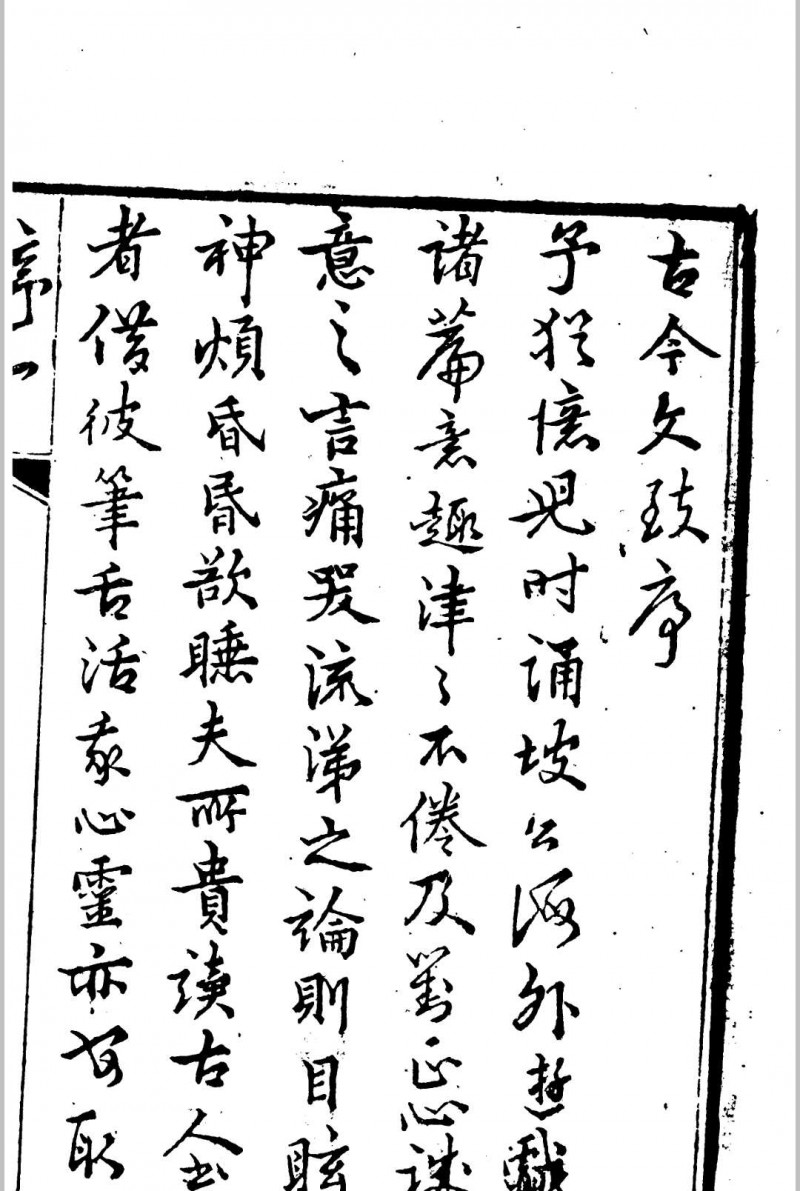 古今文致序
予猶憶兒时誦坡公海外遊戲
諸篇意趣津々不倦及對正心誠
意之言痛哭流涕之論則目眩
神煩昏昏欲睡夫所貴讀古人書
者借彼筆舌活我心靈亦何取
序一